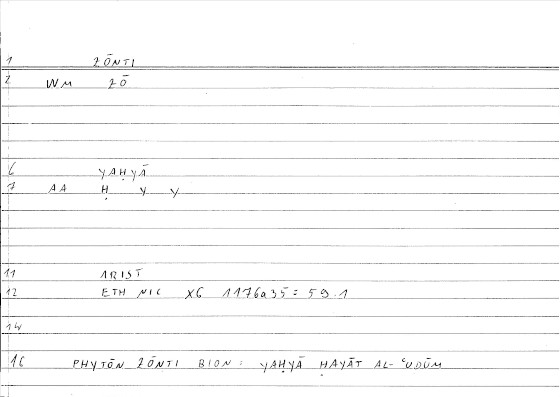 1 ZŌNTI
2 WM ZŌ
6 YAḤYĀ
7 AA Ḥ Y Y
11 ARIST
12 ETH NIC X6 1176a35 = 59.1
14
16 PHYTŌN ZŌNTI BION: YAḤYĀ ḤAYĀT AL-ʿUDŪM